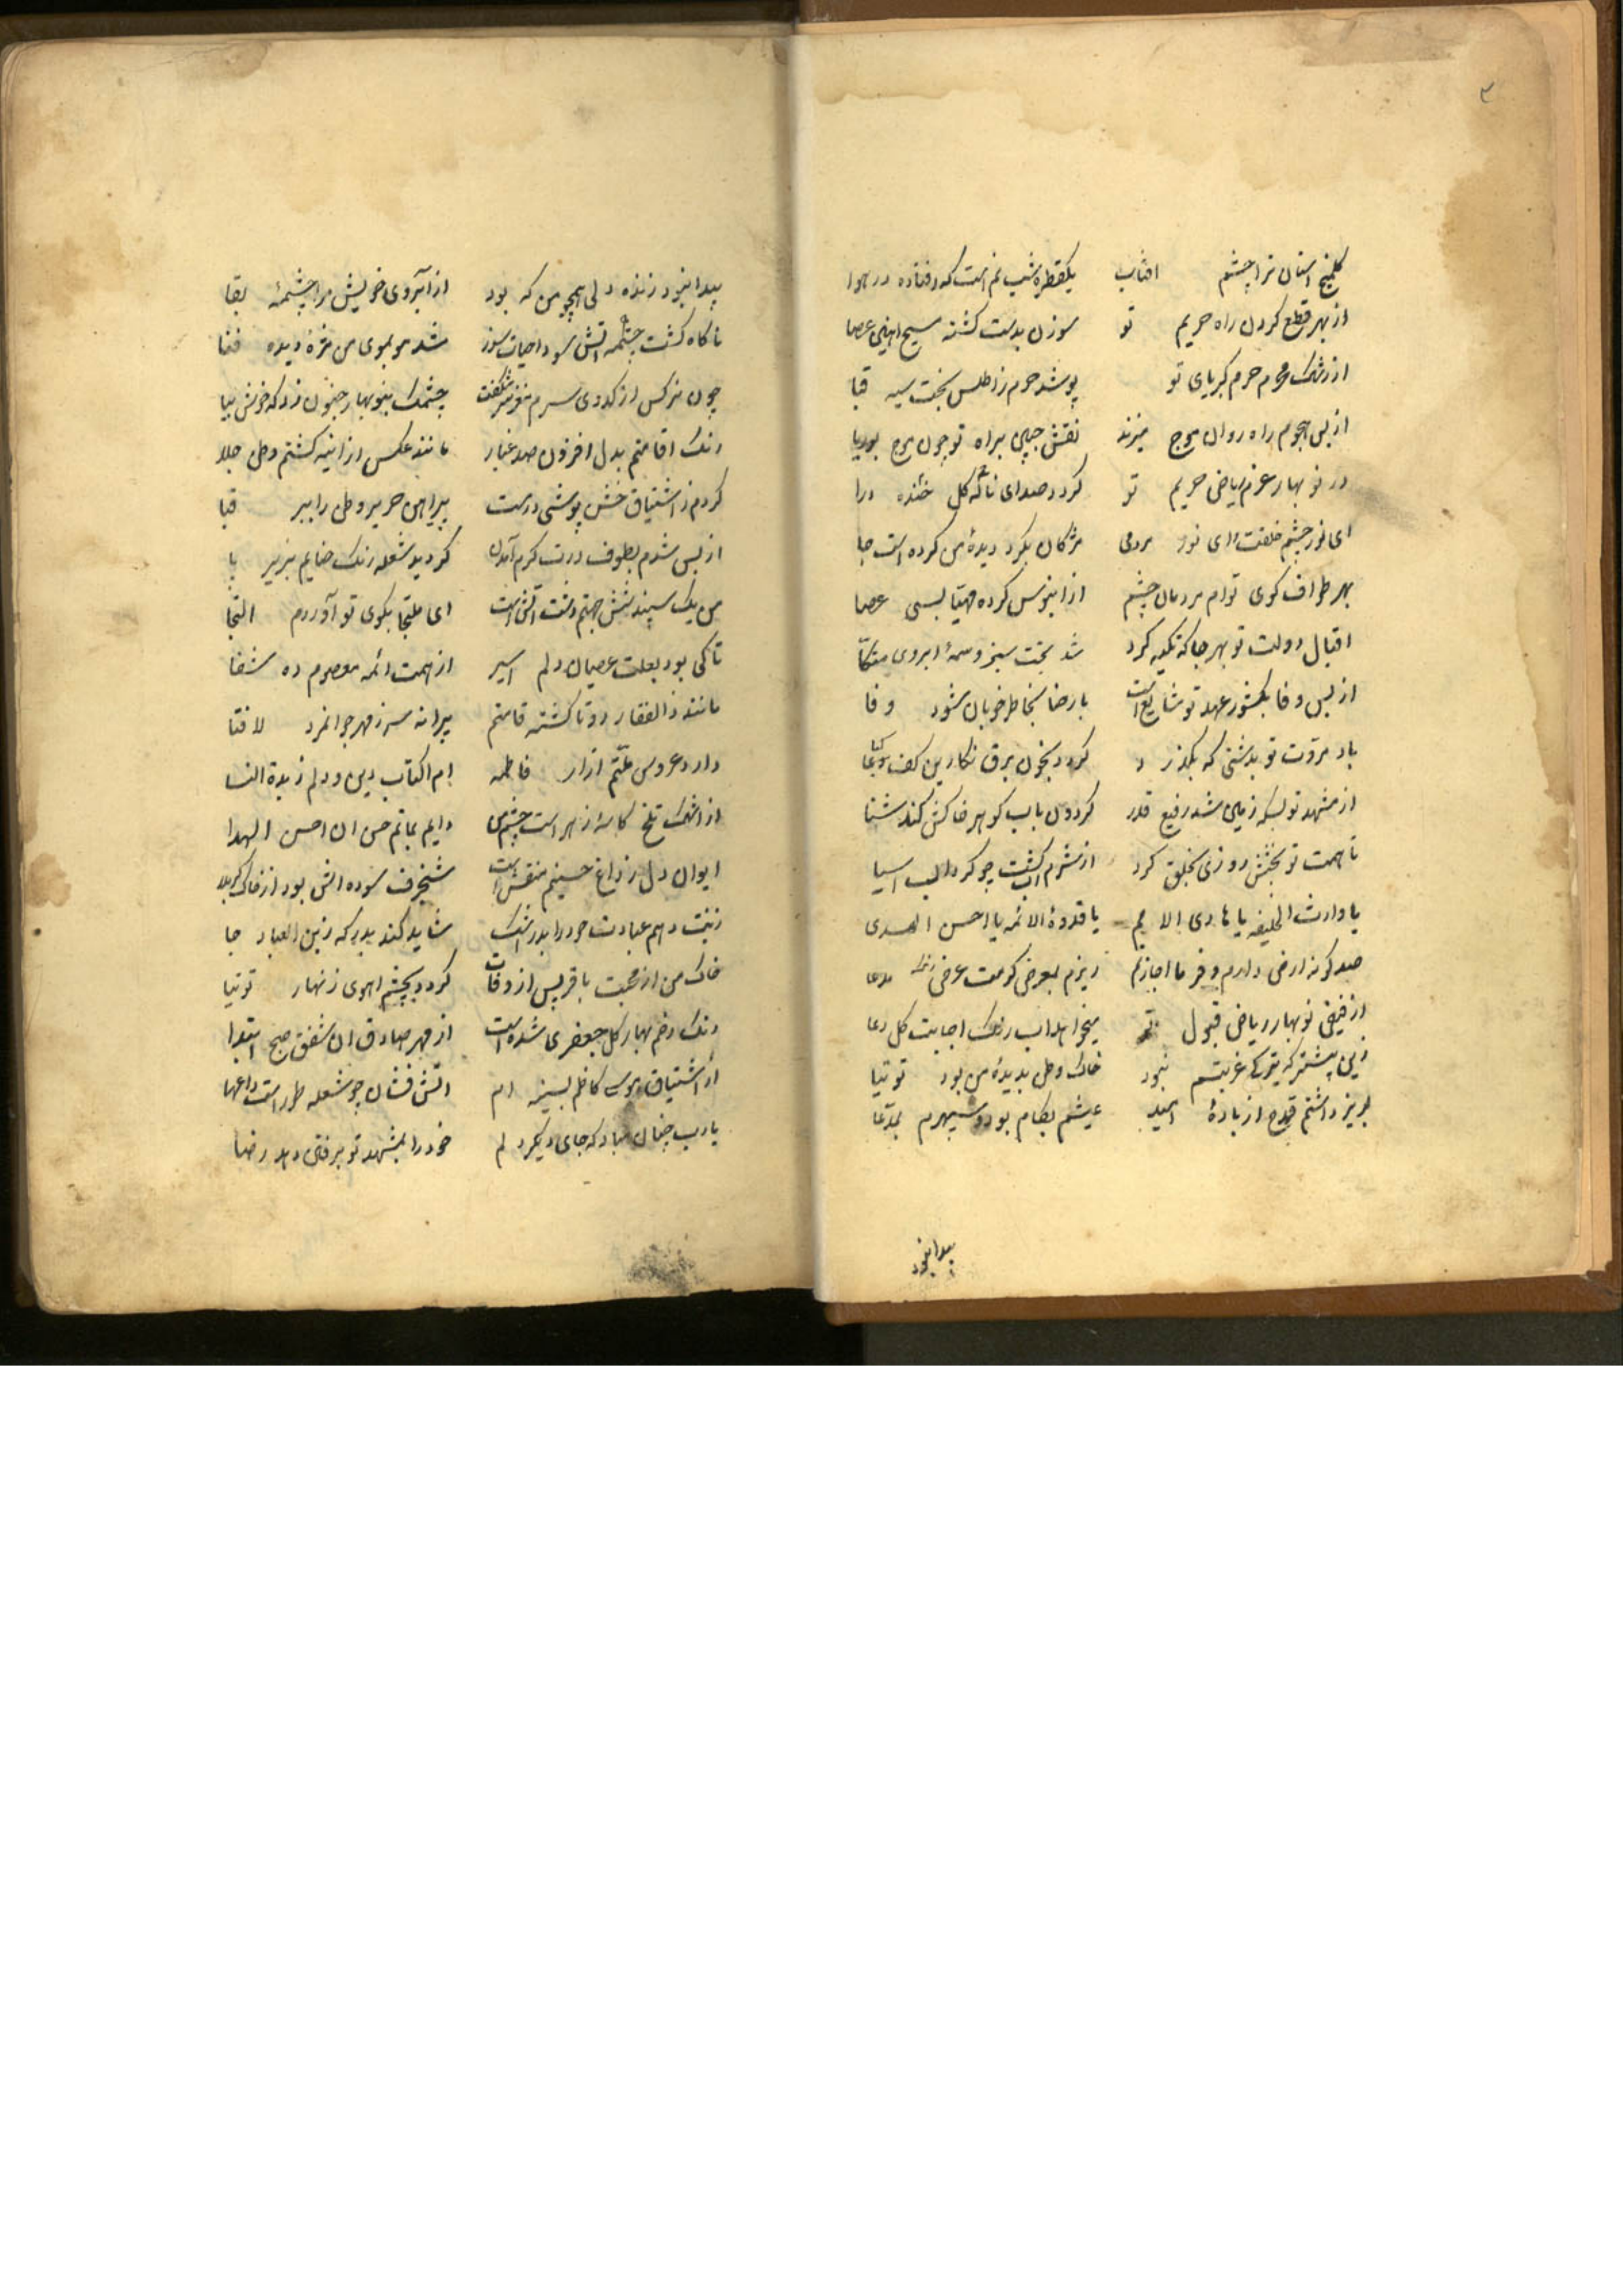 ۳
کلمیخ استان ترا چشم افتاب یکقطره شب نم است که افتاده در هوا
از بهر قطع کردن راه حریم تو سوزن بدست کشته مسیح اهنین عصا
از رشک محرم حرم کبریای تو پوشد حرم ز اطلس بخت سیه قبا
از بس هجوم راه روان موج میزند نقش جبین براه تو چون موج بوریا
در نو بهار عزم ریاض حریم تو کردد صدای ناله کل خنده درا
ای نور چشم خلقت و ای نور مردمی مژکان بکرد دیدهٔ من کرده است جا
بهر طواف کوی توام مردمان چشم از ابنوس کرده مهیا بسی عصا
اقبال دولت تو بهر جا که تکیه کرد شد بخت سبز وسمهٔ ابروی متکا
از بس وفا بکشور عهد تو شایع است بارضا بخاطر خوبان شود وفا
باد مروت تو بدشتی که بگذرد کردد بخون برق نکارین کف کیا
از مشهد تو بسکه زمین شد رفیع قدر کردون باب کوهر خاکش کند شنا
تا همت تو بخشش روزی بخلق کرد از شرم اب کشت چو کرداب اسیا
یا وارث الخلیفه یا هادی الامم یا قدوة الائمه یا احسن الهدی
صد کونه ارض دارم و فرما اجازتم ریزم بعرض کومت عرض مدعا
از فیض نو بهار ریاض قبول تو میخواهد اب رنک اجابت کل دعا
زین پیشتر که ترک غربتم نبود خاک وطن بدیدهٔ من بود توتیا
لبریز داشتم قدح از بادهٔ امید عیشم بکام بود و سپهرم بمدعا
پیدا نبود
پیدا نبود زنده دلی همچو من که بود از آبروی خویش مرا چشمهٔ بقا
ناکاه کشت چشمه اتش سودا حیات سوز شد مو بموی من مژهٔ دیده فنا
چون نرکس از کدوی سرم مغز سر شکفت چشمک بنو بهار جنون زد که خوش بیا
رنک اقامتم بدل افزون صد غبار مانند عکس از اینه کشتم وطن جلا
کردم ز اشتیاق خشن پوشی درست پیراهن حریر وطن را ببر قبا
از بس شدم بطوف درت کرم آمدن کردید شعله رنک حنایم بزیر پا
من یک سپند شش جهتم دشت اتش است ای ملتجا بکوی تو آوردم التجا
تا کی بود بعلت عصیان دلم اسیر از همت ائمه معصوم ده شفا
مانند ذالفقار دوتا کشته قامتم پیرانه سر ز مهر جوانمرد لافتا
دارد عروس ملتم ازار فاطمه ام الکتاب دین و دلم زبدة النسا
از اشک تلخ کاسهٔ زهر است چشم من دایم بماتم حسن ان احسن الهدا
ایوان دل ز داغ حسینم منقش است شنجرف سوده اش بود از خاک کربلا
زینت دهم عبادت خود را بدر اشک شاید کند بدرکه زین العباد جا
خاک من از محبت باقر پس از وفات کردد بچشم اهوی زنهار توتیا
رنک رخم بهار کل جعفری شده است از مهر صادق ان شفق صبح ابتدا
از اشتیاق موسی کاظم بسینه ام اتش فشان چو شعله طور است داغها
یارب چنان مباد که جای دیکر دلم خود را بمشهد تو برفتن دهد رضا